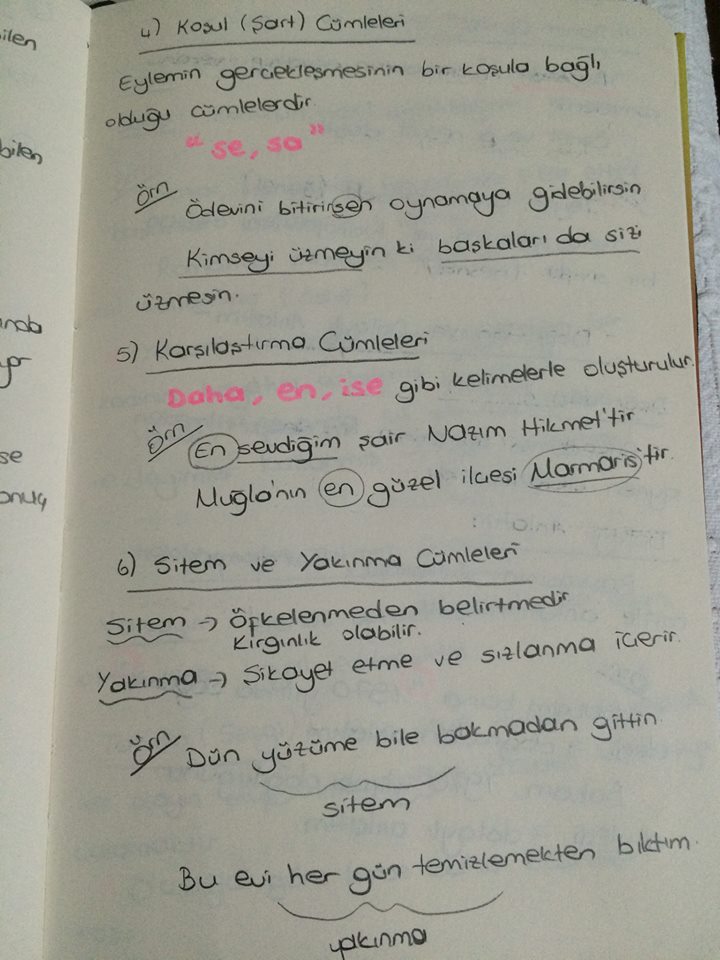 ilen
bilen
ında
yor
se
onuç
4) Koşul (Şart) Cümleleri
Eylemin gerçekleşmesinin bir koşula bağlı
olduğu cümlelerdir.
"se, sa"
Örn
Ödevini bitirirsen oynamaya gidebilirsin
Kimseyi üzmeyin ki başkaları da sizi
üzmesin.
5) Karşılaştırma Cümleleri
Daha, en, ise gibi kelimelerle oluşturulur.
Örn
En sevdiğim şair Nazım Hikmet'tir
Muğla'nın en güzel ilçesi Marmaris'tir.
6) Sitem ve Yakınma Cümleleri
Sitem → Öfkelenmeden belirtmedir
Kırgınlık olabilir.
Yakınma → Şikayet etme ve sızlanma içerir.
Örn
Dün yüzüme bile bakmadan gittin.
sitem
Bu evi her gün temizlemekten bıktım.
yakınma